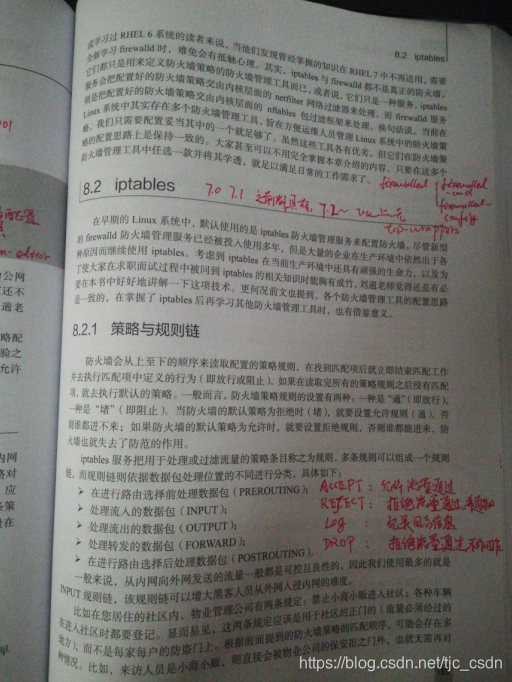 8.2 iptables
或学习过 RHEL 6 系统的读者来说，当他们发现曾经掌握的知识在 RHEL 7 中不再适用，需要
全新学习 firewalld 时，难免会有抵触心理。其实，iptables 与 firewalld 都不是真正的防火墙，
它们都只是用来定义防火墙策略的防火墙管理工具而已，或者说，它们只是一种服务。iptables
服务会把配置好的防火墙策略交由内核层面的 netfilter 网络过滤器来处理，而 firewalld 服务
则是把配置好的防火墙策略交由内核层面的 nftables 包过滤框架来处理。换句话说，当前在
Linux 系统中其实存在多个防火墙管理工具，旨在方便运维人员管理 Linux 系统中的防火墙策
略，我们只需要配置妥当其中的一个就足够了。虽然这些工具各有优劣，但它们在防火墙策
略的配置思路上是保持一致的。大家甚至可以不用完全掌握本章介绍的内容，只要在这多个
防火墙管理工具中任选一款并将其学透，就足以满足日常的工作需求了。
firewalld
firewalld-cmd
firewalld-config
8.2 iptables
7.0 7.1
tcp-wrappers
在早期的 Linux 系统中，默认使用的是 iptables 防火墙管理服务来配置防火墙。尽管新型
的 firewalld 防火墙管理服务已经被投入使用多年，但是大量的企业在生产环境中依然出于各
种原因而继续使用 iptables。考虑到 iptables 在当前生产环境中还具有顽强的生命力，以及为
了使大家在求职面试过程中被问到 iptables 的相关知识时能胸有成竹，刘遄老师觉得还是有必
要在本书中好好地讲解一下这项技术。更何况前文也提到，各个防火墙管理工具的配置思路
是一致的，在掌握了 iptables 后再学习其他防火墙管理工具时，也有借鉴意义。
8.2.1 策略与规则链
防火墙会从上至下的顺序来读取配置的策略规则，在找到匹配项后就立即结束匹配工作
并去执行匹配项中定义的行为（即放行或阻止）。如果在读取完所有的策略规则之后没有匹配
项，就去执行默认的策略。一般而言，防火墙策略规则的设置有两种：一种是“通”（即放行），
一种是“堵”（即阻止）。当防火墙的默认策略为拒绝时（堵），就要设置允许规则（通），否
则谁都进不来；如果防火墙的默认策略为允许时，就要设置拒绝规则，否则谁都能进来，防
火墙也就失去了防范的作用。
iptables 服务把用于处理或过滤流量的策略条目称之为规则，多条规则可以组成一个规则
链，而规则链则依据数据包处理位置的不同进行分类，具体如下：
➢ 在进行路由选择前处理数据包（PREROUTING）；
ACCEPT：允许流量通过
➢ 处理流入的数据包（INPUT）；
REJECT：拒绝流量通过
➢ 处理流出的数据包（OUTPUT）；
LOG：记录日志信息
➢ 处理转发的数据包（FORWARD）；
DROP：拒绝流量通过
➢ 在进行路由选择后处理数据包（POSTROUTING）。
一般来说，从内网向外网发送的流量一般都是可控且良性的，因此我们使用最多的就是
INPUT 规则链，该规则链可以增大黑客人员从外网入侵内网的难度。
比如在您居住的社区内，物业管理公司有两条规定：禁止小商小贩进入社区；各种车辆
在进入社区时都要登记。显而易见，这两条规定应该是用于社区的正门的（流量必须经过的
地方），而不是每家每户的防盗门上。根据前面提到的防火墙策略的匹配顺序，可能会存在多
种情况。比如，来访人员是小商小贩，则直接会被物业公司的保安拒之门外，也就无需再对
https://blog.csdn.net/tjc_csdn